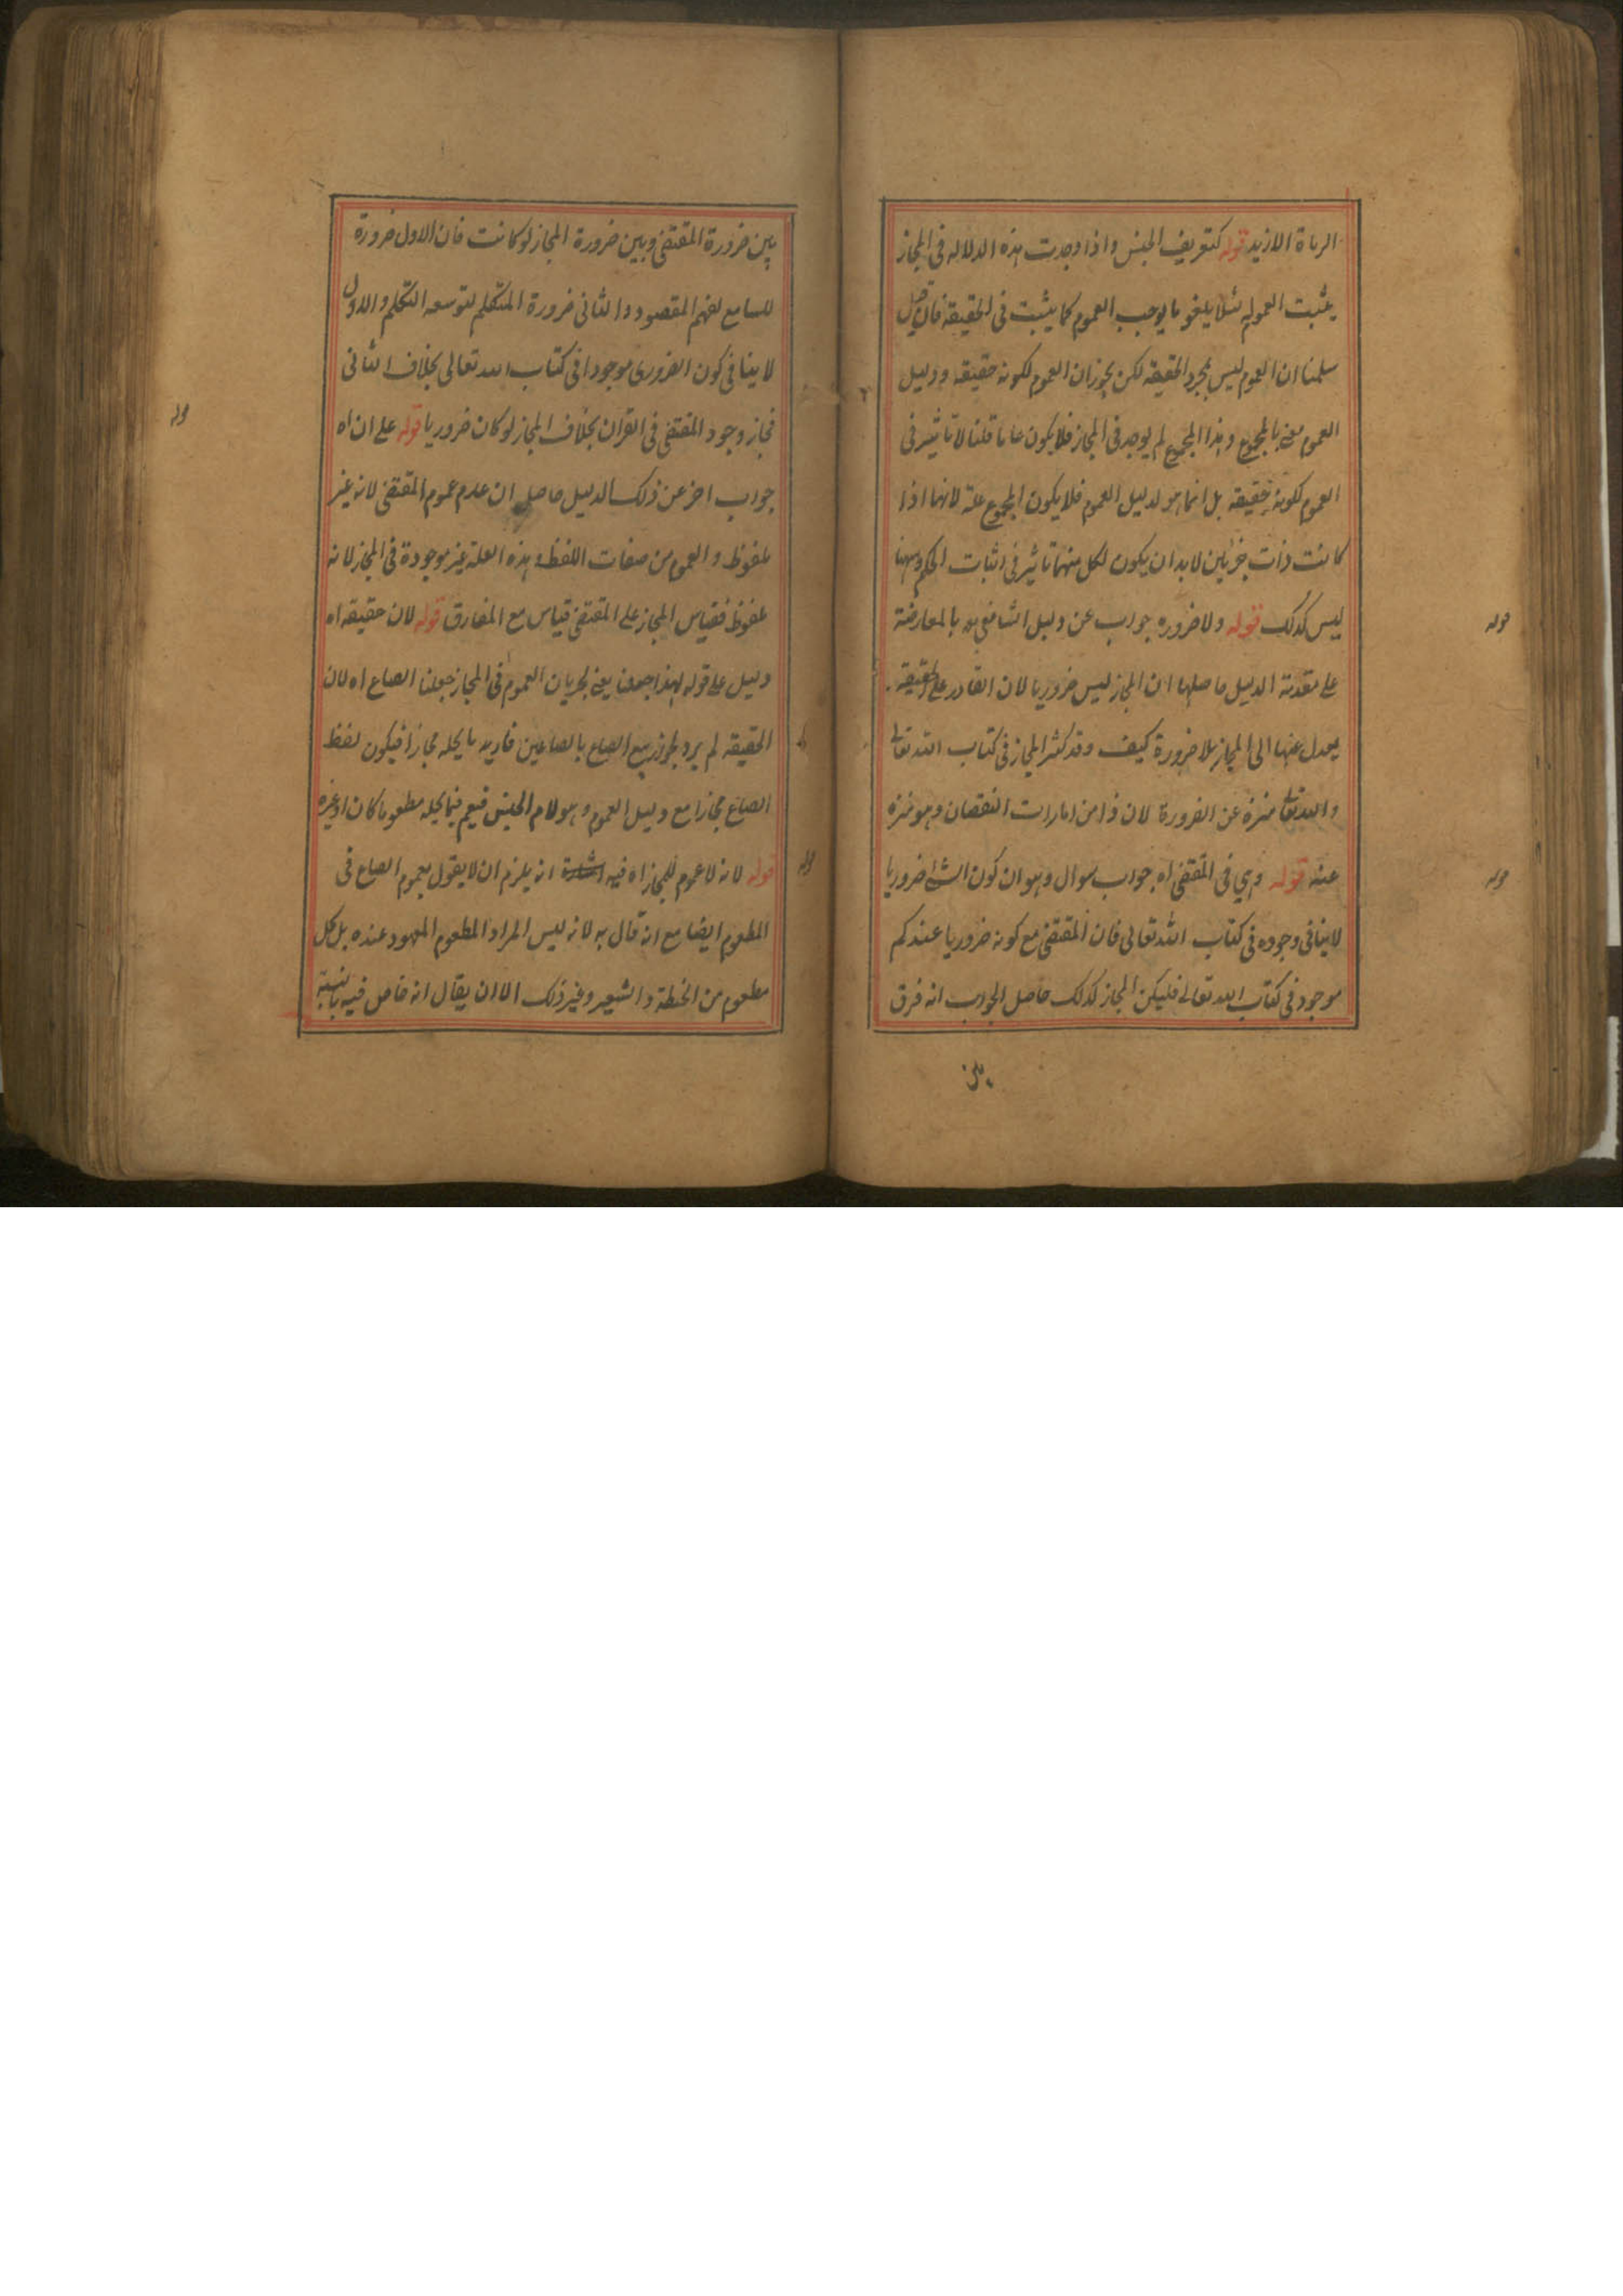 الرماة الا زيد قوله كتعريف الجنس واذا وجدت هذه الدلاله فى المجاز
يثبت العموم به لئلا يلغو ما يوجب العموم كما يثبت فى الحقيقه فان قيل
سلمنا ان العموم ليس بمجرد الحقيقه لكن يجوز ان العموم لكونه حقيقه ودليل
العموم بالمجموع وهذا المجموع لم يوجد فى المجاز فلا يكون عاما قلنا لا تاثير فى
العموم لكونه حقيقه بل انما هو لدليل العموم فلا يكون المجموع علة لانها اذا
كانت ذات جزئين لا بد ان يكون لكل منهما تاثير فى اثبات الحكم وههنا
ليس كذلك قوله ولا ضروره جواب عن دليل الشافعى رح بالمعارضة
على مقدمة الدليل حاصلها ان المجاز ليس ضروريا لان القادر على الحقيقه
يعدل عنها الى المجاز بلا ضرورة كيف وقد كثر المجاز فى كتاب الله تعالى
والله تعالى منزه عن الضرورة لان ذا من امارات النقصان وهو منزه
عنه قوله وهي فى المقتضى اه جواب سوال وهو ان كون الشئ ضروريا
لا ينافى وجوده فى كتاب الله تعالى فان المقتضى مع كونه ضروريا عندكم
موجود فى كتاب الله تعالى فليكن المجاز كذلك حاصل الجواب انه فرق
بين
قوله
قوله
بين ضرورة المقتضى وبين ضرورة المجاز لو كانت فان الاول ضرورة
للسامع لفهم المقصود والثانى ضرورة المتكلم لتوسعه التكلم والاول
لا ينافى كون الضرورى موجودا فى كتاب الله تعالى بخلاف الثانى
فجاز وجود المقتضى فى القران بخلاف المجاز لو كان ضروريا قوله على ان اه
جواب اخر عن ذلك الدليل حاصله ان عدم عموم المقتضى لانه غير
ملفوظ والعموم من صفات اللفظ وهذه العلة غير موجودة فى المجاز لانه
ملفوظ فقياس المجاز على المقتضى قياس مع الفارق قوله لان حقيقه اه
دليل على قوله لهذا جعلنا يعنى لجريان العموم فى المجاز جعلنا الصاع اه لان
الحقيقه لم يرد لجواز بيع الصاع بالصاعين فاريد ما يحله مجازا فيكون لفظ
الصاع مجازا مع دليل العموم وهو لام الجنس فيعم فيما يحله مطعوما كان او غيره
قوله لانه لا عموم للمجاز اه فيه اشارة انه يلزم ان لا يقول بعموم الصاع فى
المطعوم ايضا مع انه قال به لانه ليس المراد المطعوم المعهود عنده بل كل
مطعوم من الحنطة والشعير وغير ذلك الا ان يقال انه خاص فيه بالنسبة
قوله
قوله